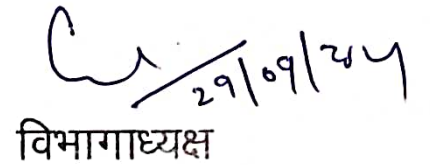 29/09/24
विभागाध्यक्ष